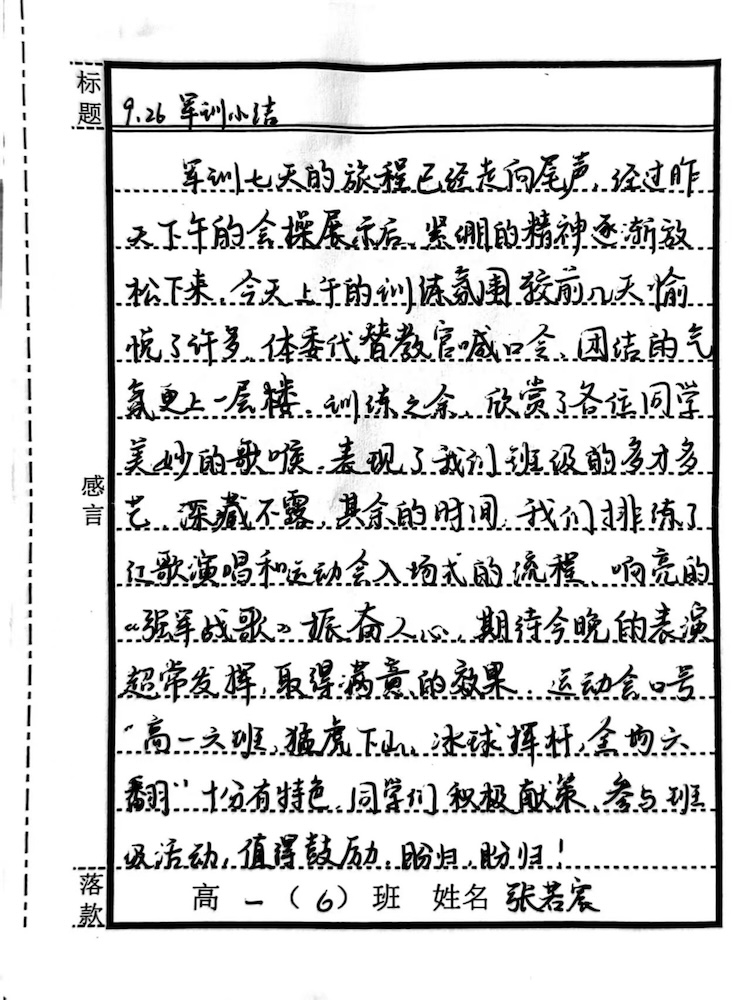 标题
9.26 军训小结
军训七天的旅程已经走向尾声，经过昨
天下午的会操展示后，紧绷的精神逐渐放
松下来，今天上午的训练氛围较前几天愉
悦了许多，体委代替教官喊口令，团结的气
氛更上一层楼。训练之余，欣赏了各位同学
美妙的歌喉，表现了我们班级的多才多
艺，深藏不露，其余的时间，我们排练了
红歌演唱和运动会入场式的流程，响亮的
《强军战歌》振奋人心，期待今晚的表演
超常发挥，取得满意的效果。运动会口号
“高一六班，猛虎下山，冰球挥杆，全场六
翻”十分有特色，同学们积极献策，参与班
级活动，值得鼓励，盼归，盼归！
感言
落款
高一（6）班 姓名 张若宸